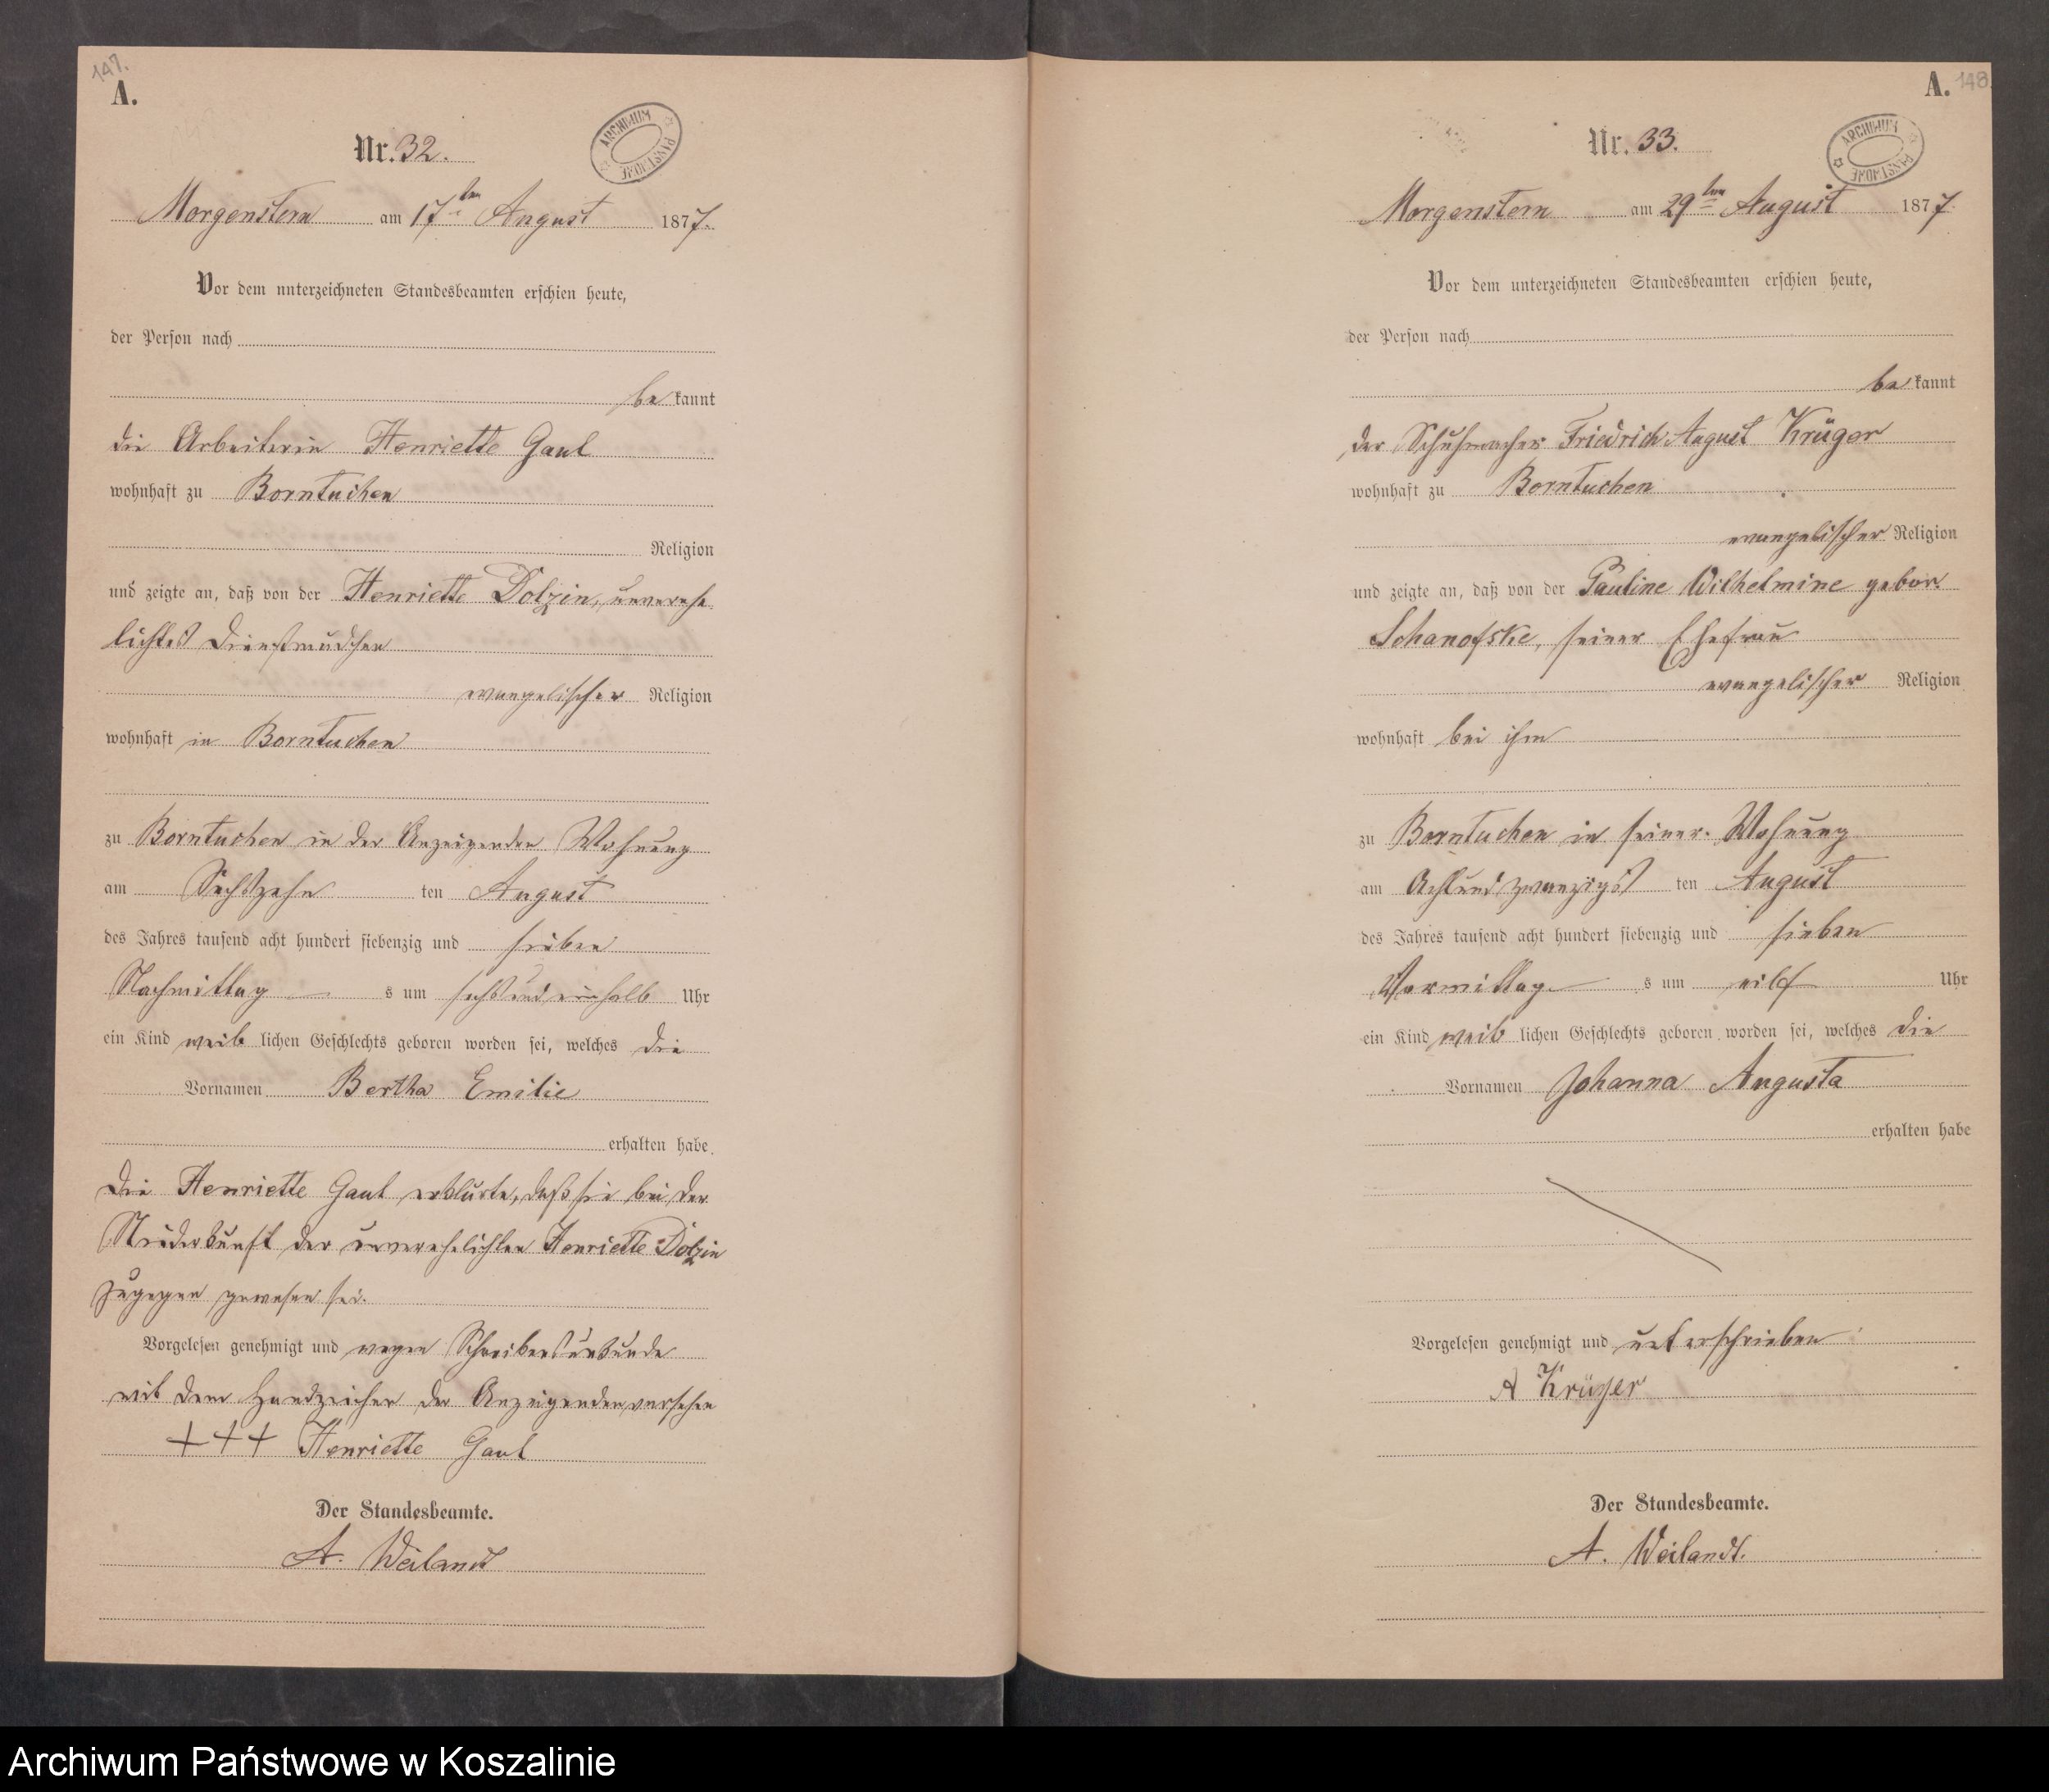 147.
A.
Nr. 32.
ARCHIWUM PAŃSTWOWE
Morgenstern am 17ten August 1877.
Vor dem unterzeichneten Standesbeamten erschien heute,
der Person nach
bekannt
die Arbeiterin Henriette Gaul
wohnhaft zu Borntuchen
Religion
und zeigte an, daß von der Henriette Dolzin, unverehe
lichtes Dienstmädchen
evangelischer Religion
wohnhaft in Borntuchen
zu Borntuchen in der Anzeigenden Wohnung
am Sechszehn ten August
des Jahres tausend acht hundert siebenzig und sieben
Nachmittag s um sechsundeinhalb Uhr
ein Kind weiblichen Geschlechts geboren worden sei, welches die
Vornamen Bertha Emilie
erhalten habe.
Die Henriette Gaul erklärte, daß sie bei der
Niederkunft der unverehelichten Henriette Dolzin
zugegen gewesen sei.
Vorgelesen genehmigt und wegen Schreibensunkunde
mit dem Handzeichen der Anzeigenden versehen
+++ Henriette Gaul
Der Standesbeamte.
A. Weilandt
A. 148.
Nr. 33.
ARCHIWUM PAŃSTWOWE
Morgenstern am 29ten August 1877.
Vor dem unterzeichneten Standesbeamten erschien heute,
der Person nach
bekannt
der Schuhmacher Friedrich August Krüger
wohnhaft zu Borntuchen
evangelischer Religion
und zeigte an, daß von der Pauline Wilhelmine gebor.
Schanofske, seiner Ehefrau
evangelischer Religion
wohnhaft bei ihm
zu Borntuchen in seiner Wohnung
am Achtundzwanzigs ten August
des Jahres tausend acht hundert siebenzig und sieben
Vormittag s um eilf Uhr
ein Kind weiblichen Geschlechts geboren worden sei, welches die
Vornamen Johanna Augusta
erhalten habe
Vorgelesen genehmigt und unterschrieben
A Krüger
Der Standesbeamte.
A. Weilandt.
Archiwum Państwowe w Koszalinie